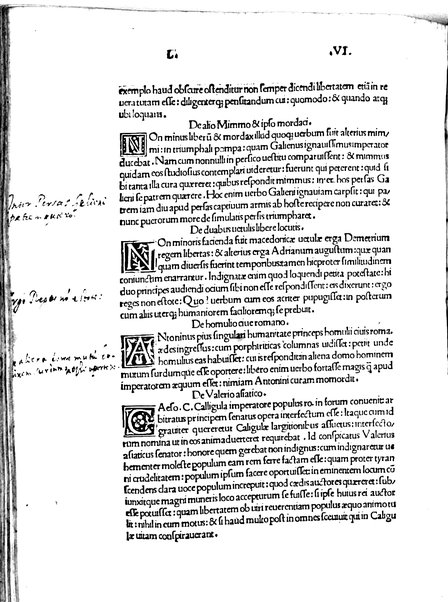 L. .VI.
exemplo haud obscure ostenditur non semper dicendi libertatem etiā in re
uera tutam esse: diligenterq; pensitandum cui: quomodo: & quando atq;
ubi loquaris.
De alio Mimmo & ipso mordaci.
NOn minus liberū & mordax illud quoq; uerbum fuit alterius mim/
mi: in triumphali pompa: quam Galienus ignauissimus imperator
ducebat. Nam cum nonnulli in persico uestitu comparuissent: & mimmus
quidam eos studiosius contemplari uideretur: fuerunt qui peterent: quid si
bi tanta illa cura quæreret: quibus respondit mimmus: inter hos persas Ga
lieni se patrem quærere. Hoc enim uerbo Galieni ignauiam carpsit: qui pa/
trem iam diu apud persas captiuum armis ab hoste recipere non curaret: &
nunc puerorum more de simulatis persis triumpharet.
De duabus uetulis libere locutis.
NOn minoris facienda fuit macedonicæ uetulæ erga Demetrium
regem libertas: & alterius erga Adrianum augustum: quæ quam
quam diuersis fuerint temporibus tamen hic propter similiudinem
coniunctim enarrantur. Indignatæ enim quod loquendi petita potestate: hi
duo principes audiendi ocium sibi non esse respondissent: eis dixerunt: ergo
reges non estote: Quo! uerbum cum eos acriter pupugisset: in posterum
cum aliis uterq; humaniorem facilioremq; se prebuit.
De homulio ciue romano.
ANtoninus pius singulari humanitate princeps homulii ciuis romæ.
ædes ingressus: cum porphiriticas columnas uidisset: petit unde
homulius eas habuisset: cui is respondit in aliena domo hominem
mutum surdumque esse oportere: libero enim uerbo fortasse magis q̄ apud
imperatorem æquum esset: nimiam Antonini curam momordit.
De Valerio asiatico.
CAeso. C. Calligula imperatore populus ro. in forum conuenit ar
bitratus principem senatus opera interfectum esse: Itaque cum id
grauiter quereretur Caligulæ largitionibus assuetus: interfecto/
rum nomina ut in eos animaduerteret requirebat. Id conspicatus Valerius
asiaticus senator: honore quem gerebat non indignus: cum indignaretur ue
hementer moleste populum eam rem ferre factam esse: quam proter tyran
ni crudelitatem: populum ipsum facere oportuisset: in eminentem locum cō
scendens clara uoce populum increpuit: quod cædis auctores quæreret: sub/
iunxitque magni muneris loco accepturum se fuisse: si ipse huius rei auctor
esse potuisset: quam libertatem ob uiri reuerentiam populus æquo animo tu
lit: nihil in eum motus: & si haud multo post in omnes sæuiuit qui in Caligu
læ uitam conspirauerant.
Inter Persas Galieni
patrem quæro
Ergo Reges nō estote: